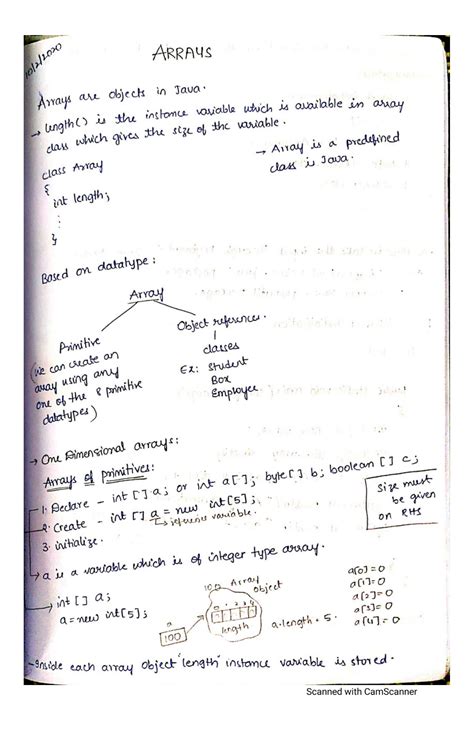 10/2/2020
ARRAYS
Arrays are objects in Java.
→ length() is the instance variable which is available in array
class which gives the size of the variable.
→ Array is a predefined
class is Java.
class Array
{
int length;
:
}
Based on datatype:
Array
Primitive
(We can create an
array using any
one of the 8 primitive
datatypes)
Object references.
classes
Ex: Student
Box
Employee
→ One Dimensional arrays:
Arrays of primitives:
1. Declare - int [] a; or int a[]; byte[] b; boolean [] c;
2. Create - int [] a = new int[5];
reference variable.
3. initialize.
Size must
be given
on RHS
→ a is a variable which is of integer type array.
→ int [] a;
a = new int[5];
a
100
100 Array
Object
0 1 2 3 4
length
a.length = 5.
a[0]=0
a[1]=0
a[2]=0
a[3]=0
a[4]=0
- Inside each array object "length" instance variable is stored.
Scanned with CamScanner